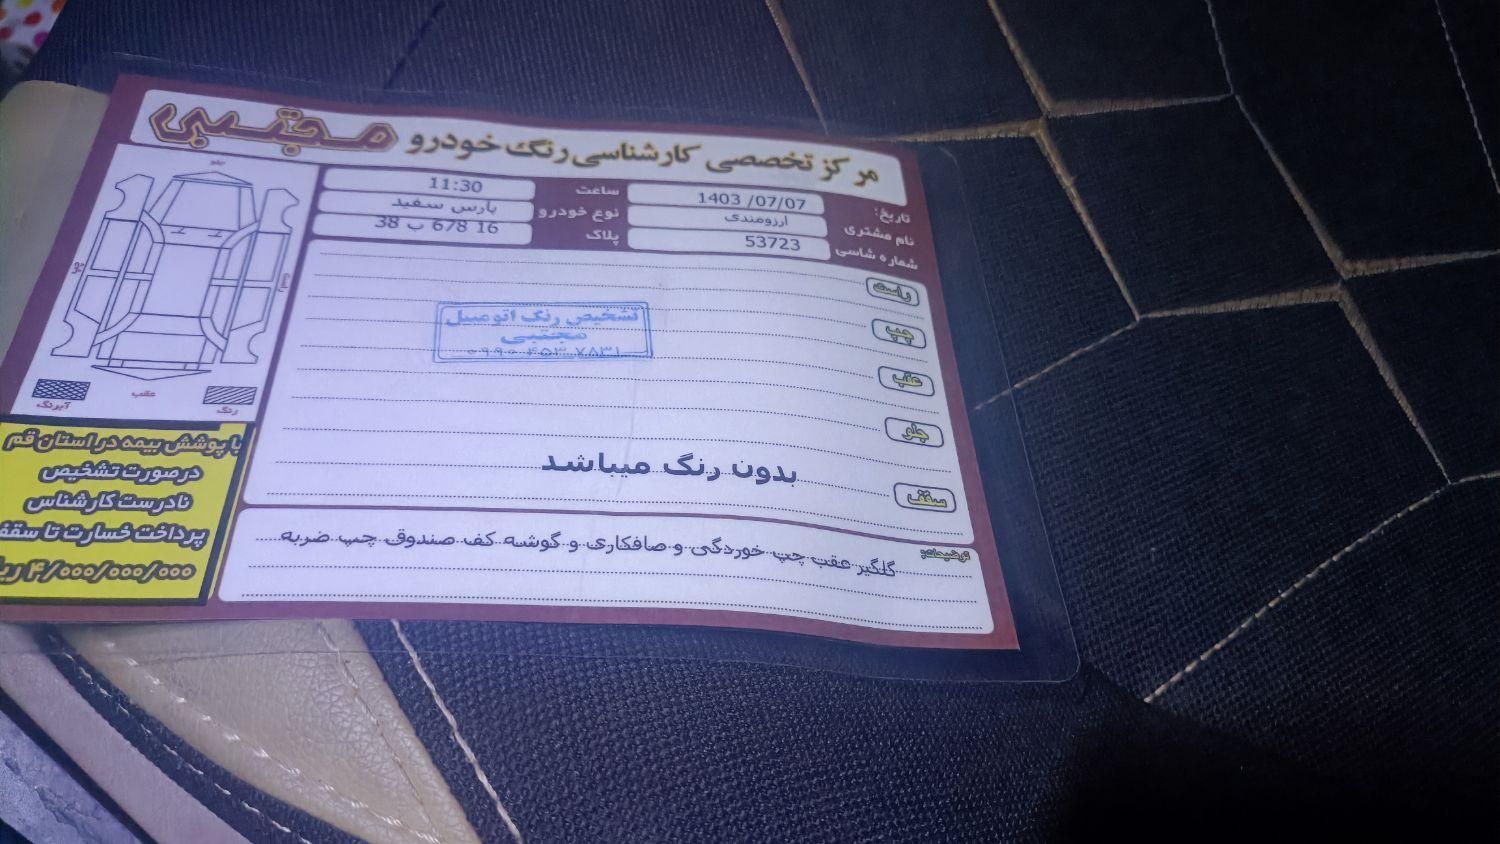 مرکز تخصصی کارشناسی رنگ خودرو مجتبی
تاریخ: 1403 /07/07 ساعت 11:30
نام مشتری ارزومندی نوع خودرو پارس سفید
شماره شاسی 53723 پلاک 38 ب 678 16
جلو
چپ
راست
عقب
آبرنگ
رنگ
راست
چپ
عقب
جلو
سقف
تشخیص رنگ اتومبیل
مجتبی
۰۹۹۰ ۴۵۳ ۷۸۳۱
بدون رنگ میباشد
توضیحات:
گلگیر عقب چپ خوردگی و صافکاری و گوشه کف صندوق چپ ضربه
با پوشش بیمه در استان قم
درصورت تشخیص
نادرست کارشناس
پرداخت خسارت تا سقف
۴/۰۰۰/۰۰۰/۰۰۰